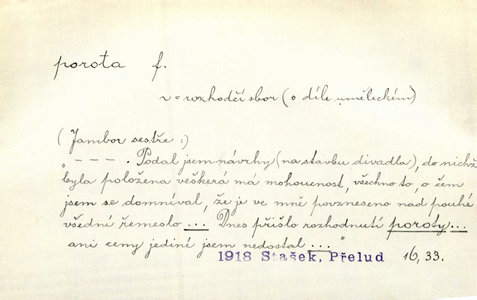 porota f.
v = rozhodčí sbor (o díle uměleckém)
(Jambor sestře:)
"- - - . Podal jsem návrhy (na stavbu divadla), do nichž
byla položena veškerá má mohoucnost, všechno to, o čem
jsem se domníval, že je ve mně povzneseno nad pouhé
všední řemeslo ... Dnes přišlo rozhodnutí poroty...
ani ceny jediné jsem nedostal ..."
1918 Stašek, Přelud 16, 33.